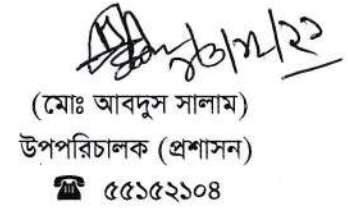 (মোঃ আবদুস সালাম)
উপপরিচালক (প্রশাসন)
☎ ৫৫১৫২১০৪